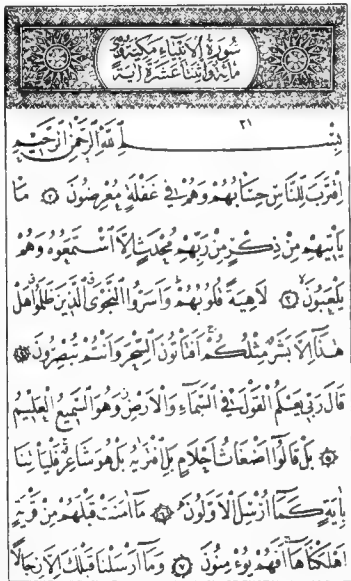 سُورَةُ الْاَنْبِيَاءِ مَكِّيَّةٌ وَهِيَ
مِائَةٌ وَاثْنَتَا عَشَرَةَ اٰيَةً
٢١
بِسْمِ اللّٰهِ الرَّحْمٰنِ الرَّحِيمِ
اِقْتَرَبَ لِلنَّاسِ حِسَابُهُمْ وَهُمْ فِي غَفْلَةٍ مُعْرِضُونَ ﴿١﴾ مَا
يَأْتِيهِمْ مِنْ ذِكْرٍ مِنْ رَبِّهِمْ مُحْدَثٍ اِلَّا اسْتَمَعُوهُ وَهُمْ
يَلْعَبُونَ ﴿٢﴾ لَاهِيَةً قُلُوبُهُمْ وَاَسَرُّوا النَّجْوَى الَّذِينَ ظَلَمُوا هَلْ
هٰذَا اِلَّا بَشَرٌ مِثْلُكُمْ اَفَتَأْتُونَ السِّحْرَ وَاَنْتُمْ تُبْصِرُونَ ﴿٣﴾
قَالَ رَبِّي يَعْلَمُ الْقَوْلَ فِي السَّمَاءِ وَالْاَرْضِ وَهُوَ السَّمِيعُ الْعَلِيمُ
﴿٤﴾ بَلْ قَالُوا اَضْغَاثُ اَحْلَامٍ بَلِ افْتَرٰيهُ بَلْ هُوَ شَاعِرٌ فَلْيَأْتِنَا
بِاٰيَةٍ كَمَا اُرْسِلَ الْاَوَّلُونَ ﴿٥﴾ مَا اٰمَنَتْ قَبْلَهُمْ مِنْ قَرْيَةٍ
اَهْلَكْنَاهَا اَفَهُمْ يُؤْمِنُونَ ﴿٦﴾ وَمَا اَرْسَلْنَا قَبْلَكَ اِلَّا رِجَالًا